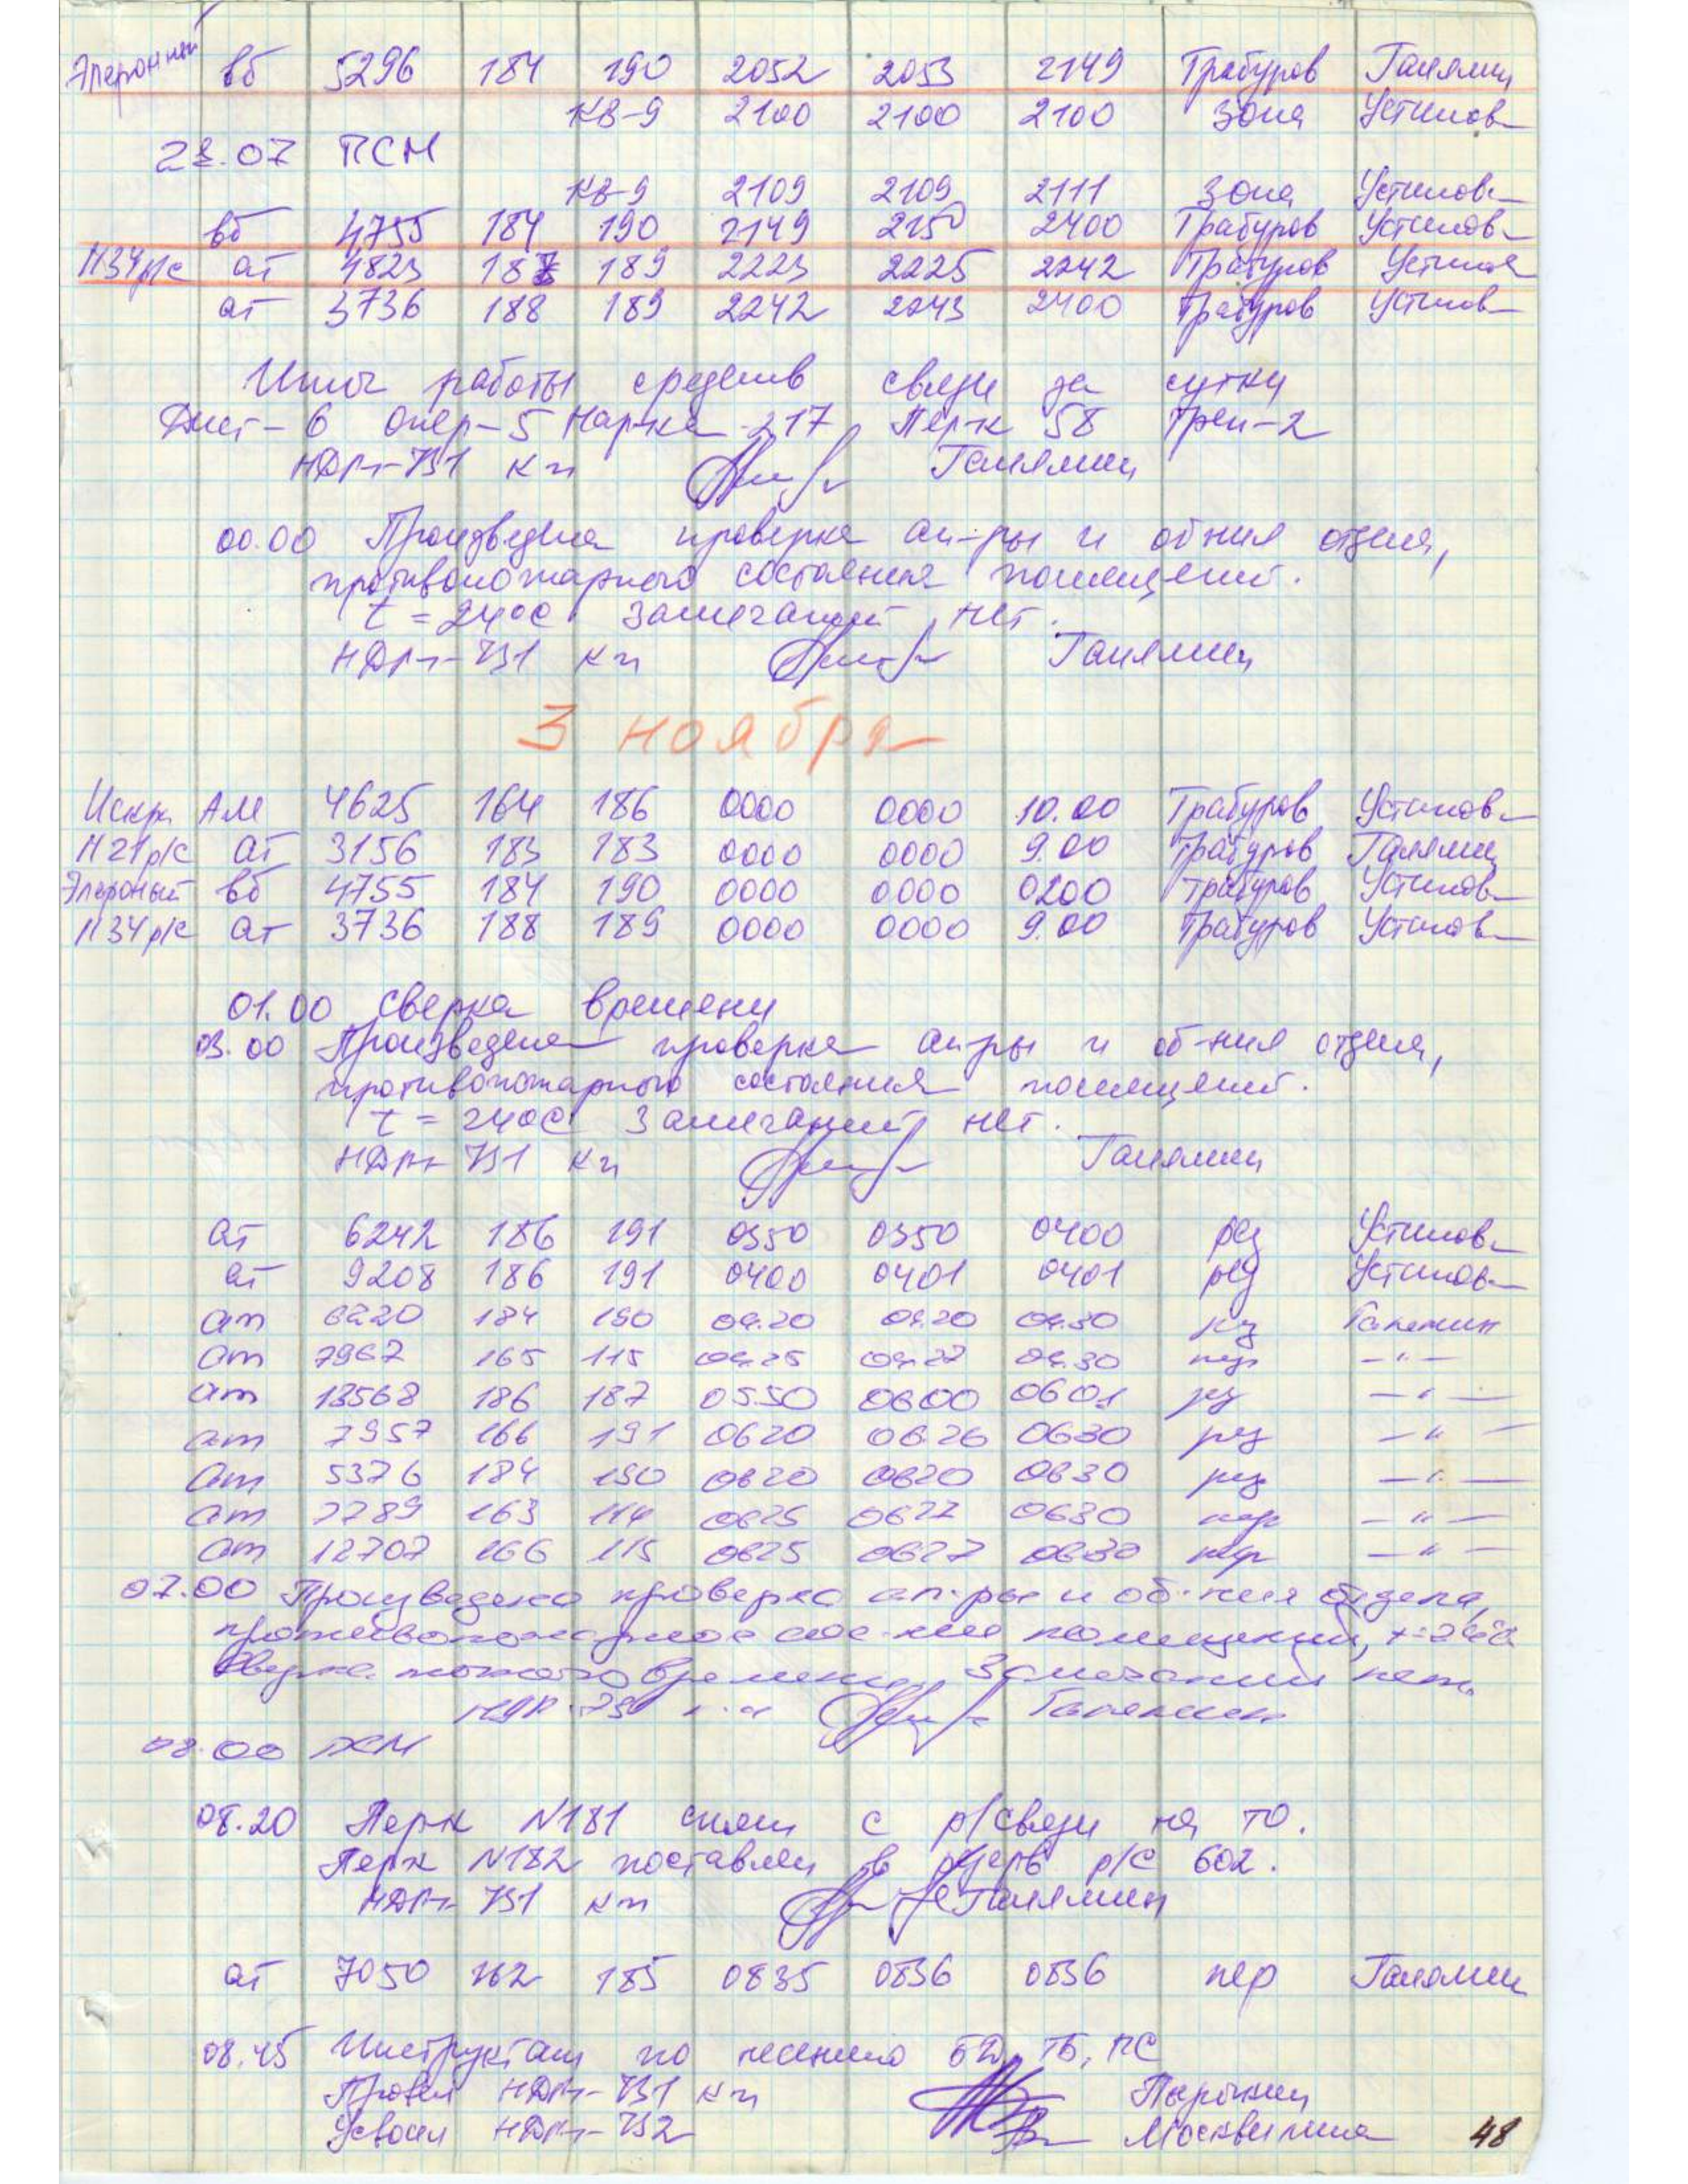 Элеронный вб 5296 184 190 2052 2053 2149 Трабуров Галямин
КВ-9 2100 2100 2100 Зона Устинов
23.07 ПСМ
КВ-9 2109 2109 2111 Зона Устинов
вб 4755 184 190 2149 2150 2400 Трабуров Устинов
N34р/с ат 4823 187 189 2223 2225 2242 Трабуров Устинов
ат 3736 188 189 2242 2243 2400 Трабуров Устинов
Итог работы средств связи за сутки
Дист-6 Опер-5 Нар-ка 217 Пер-к 58 Трен-2
КП Галямин
00.00 Произведена проверка ап-ры и об-ния отдела,
противопожарного состояния помещений.
t = 240С Замечаний нет.
КП Галямин
3 ноября
Искра АМ 4625 164 186 0000 0000 10.00 Трабуров Устинов
N21р/с ат 3156 183 183 0000 0000 9.00 Трабуров Галямин
Элероный вб 4755 184 190 0000 0000 0200 Трабуров Устинов
N34р/с ат 3736 188 189 0000 0000 9.00 Трабуров Устинов
01.00 Сверка времени
03.00 Произведена проверка ап-ры и об-ния отдела,
противопожарного состояния помещений.
t = 240С Замечаний нет.
КП Галямин
ат 6242 186 191 0350 0350 0400 рез Устинов
ат 9208 186 191 0400 0401 0401 рез Устинов
ат 6220 184 190 04.20 04.20 04.30 рез Галямин
ат 7967 165 115 04.25 04.27 04.30 пер -"-
ат 13568 186 187 0550 0600 0601 рез -"-
ат 7957 166 191 0620 0626 0630 рез -"-
ат 5376 184 190 0620 0620 0630 рез -"-
ат 7789 163 114 0625 0627 0630 пер -"-
ат 12707 166 115 0625 0627 0630 пер -"-
07.00 Произведена проверка ап-ры и об-ния отдела,
противопожарное сос-ние помещений,
Сверка точного времени. Замечаний нет.
Галямин
08.00 ПСМ
08.20 Перк N181 снят с р/связи на ТО.
Перк N182 поставлен в резерв р/с 602.
КП Галямин
ат 7050 162 185 0835 0836 0836 пер Галямин
08.45 Инструктаж по несению БД, ТБ, ПС
Провел КП
Усвоил Москвитина
48